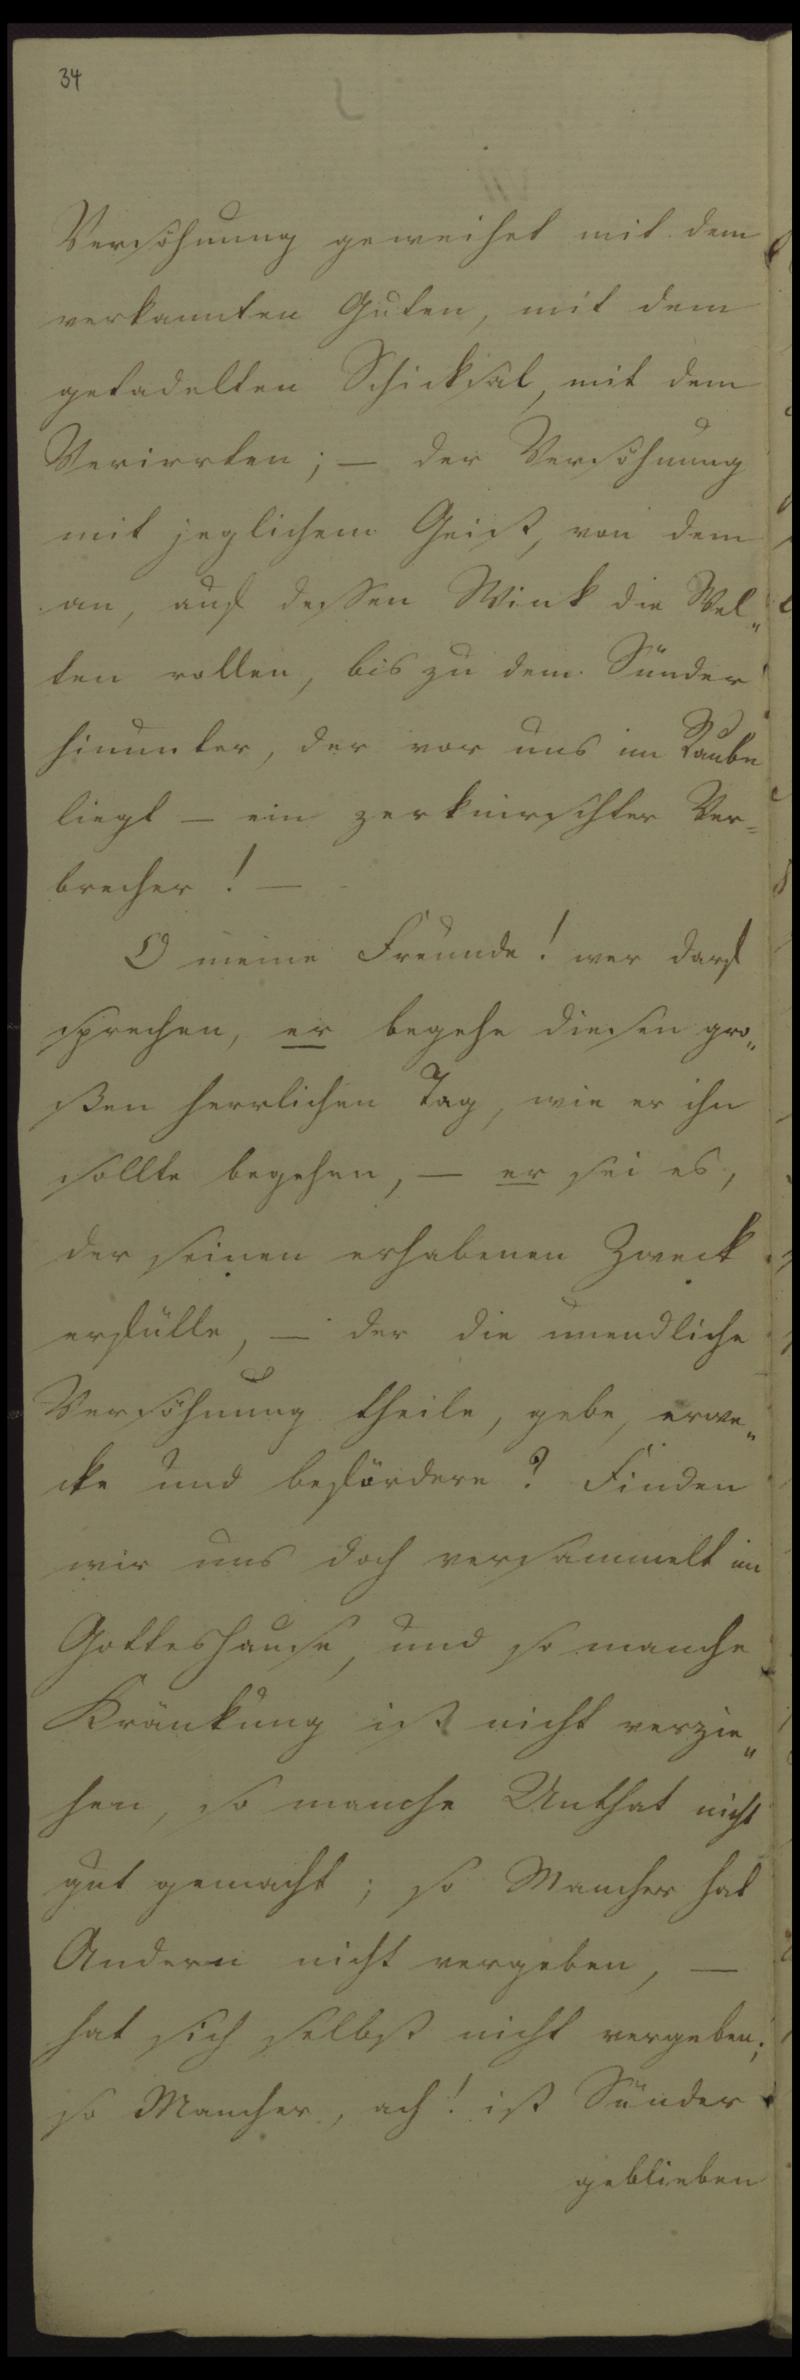 34
Versöhnung geweihet mit dem
verkannten Guten, mit dem
getadelten Schicksal, mit dem
Verirrten; — der Versöhnung
mit jeglichem Geist, von dem
an, auf dessen Wink die Wel„
ten rollen, bis zu dem Sünder
hinunter, der vor uns im Staube
liegt — ein zerknirschter Ver=
brecher! —
O meine Freunde! wer darf
sprechen, er begehe diesen gro„
ßen herrlichen Tag, wie er ihn
sollte begehen, — er sei es,
der seinen erhabenen Zweck
erfülle, — der die unendliche
Versöhnung theile, gebe, erwe„
cke und befördere? Finden
wir uns doch versammelt im
Gotteshause, und so manche
Kränkung ist nicht verzie„
hen, so manche Unthat nicht
gut gemacht; so Mancher hat
Andern nicht vergeben, —
hat sich selbst nicht vergeben;
so Mancher, ach! ist Sünder
geblieben